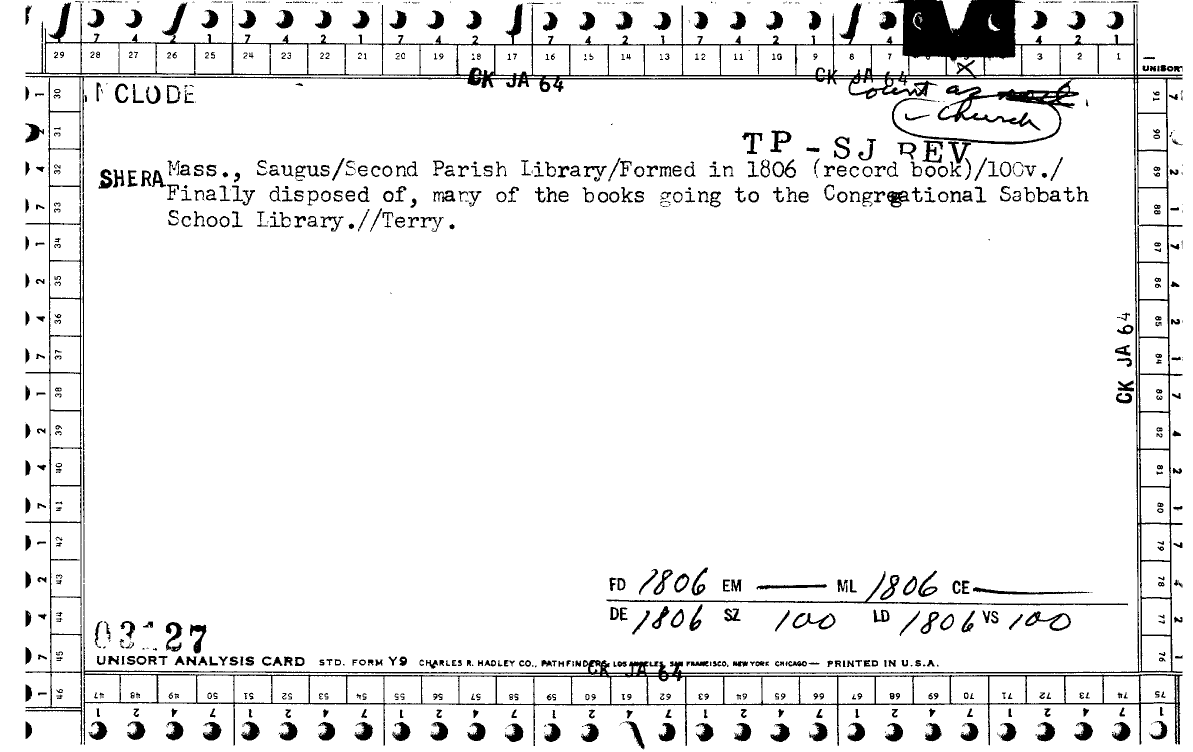 7 4 2 1 7 4 2 1 7 4 2 1 7 4 2 1 7 4 2 1 7 4 4 2 1
29 28 27 26 25 24 23 22 21 20 19 18 17 16 15 14 13 12 11 10 9 8 7 3 2 1
UNISORT
CK JA 64 CK JA 64
INCLUDE
Count as
- Church
TP - SJ REV
SHERA Mass., Saugus/Second Parish Library/Formed in 1806 (record book)/100v./
Finally disposed of, many of the books going to the Congregational Sabbath
School Library.//Terry.
1 30
2 31
4 32
7 33
1 34
2 35
4 36
7 37
1 38
2 39
4 40
7 41
1 42
2 43
4 44
7 45
1 46
91 7
90
89 2
88 1
87 7
86 4
85 2
84 1
83 7
82 4
81 2
80 1
79 7
78 4
77 2
76 1
CK JA 64
FD 1806 EM — ML 1806 CE —
DE 1806 SZ 100 LD 1806 VS 100
03127
UNISORT ANALYSIS CARD STD. FORM Y9 CHARLES R. HADLEY CO., PATHFINDERS, LOS ANGELES, SAN FRANCISCO, NEW YORK CHICAGO — PRINTED IN U.S.A.
CK JA 64
47 48 49 50 51 52 53 54 55 56 57 58 59 60 61 62 63 64 65 66 67 68 69 70 71 72 73 74 75
1 2 4 7 1 2 4 7 1 2 4 7 1 2 4 7 1 2 4 7 1 2 4 7 1 2 4 7 1